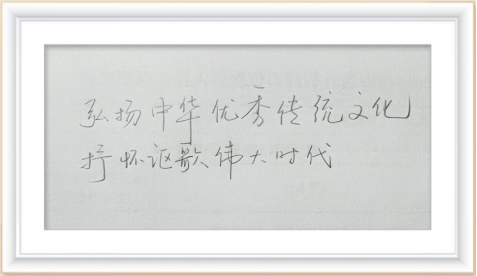 弘扬中华优秀传统文化
抒怀讴歌伟大时代